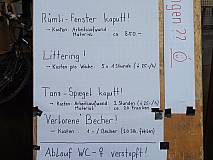 Rümbi-Fenster kaputt!
→ Kosten: Arbeitsaufwand
Material: ca. 800.-
Littering!
→ Kosten pro Woche: 5 x 1 Stunde (à 25.-/h)
Tanz-Spiegel kaputt!
→ Kosten: Arbeitsaufwand: 3 Stunden (à 25.-/h)
Material: ca. 20 Franken
Verlorene Becher!
→ Kosten: 1.-/Becher (20 Stk. fehlen)
Ablauf WC-♀ verstopft!
gen ??